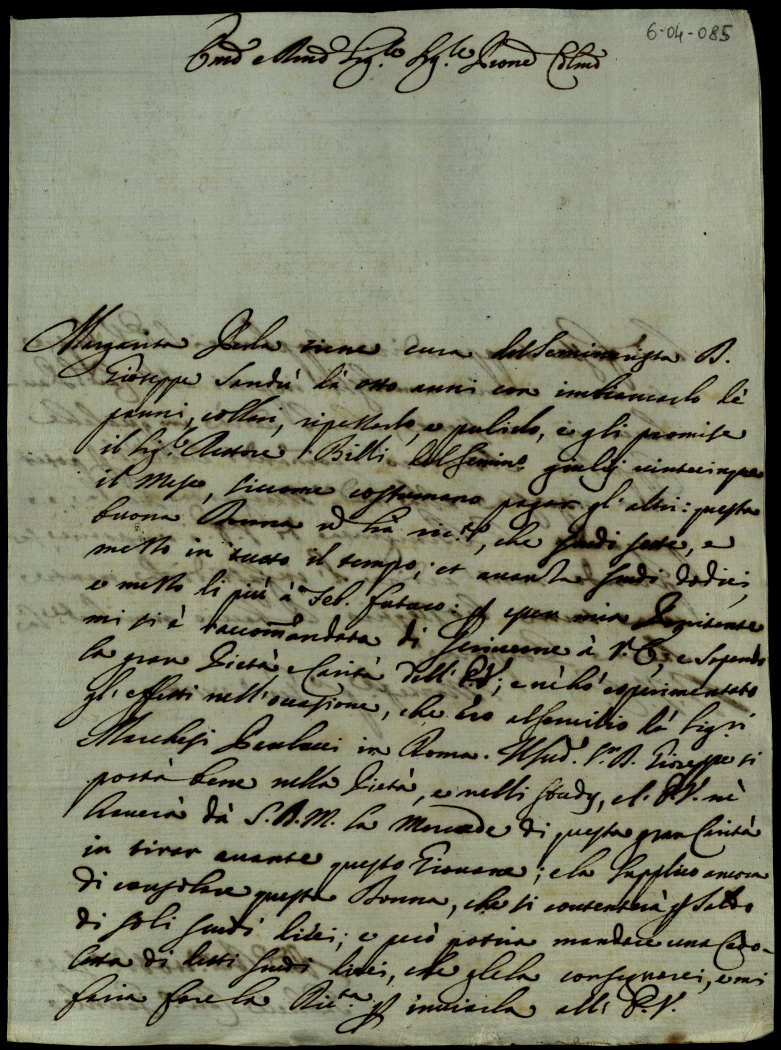 6-04-085
Emo e Rmo Sig.re Sig.re Prone Colmo
Margarita Perla tiene cura del Seminarista D.
Gioseppe Sandri da otto anni con imbiancarlo le
panni, collari, ripettarlo, e pulirlo, e gli promise
il Sig.re Rettore Billi del Semin.o giulij vinticinque
il Mese, siccome costumano pagar gl'altri: questa
buona Donna n'hà ric.to, che scudi sette, e
mezzo in tutto il tempo; et avanza scudi dodici,
e mezzo li più à : esser mia Penitente
mi si è raccomandata di scriverne à V. E; e sapendo
la gran Pietà e Carità dell' E.V; e nè hò esperimentato
gl'effetti nell'occasione, che ero al servitio dà Sig.ri
Marchesi in Roma. D. Gioseppe si
portà bene nella Pietà, e nelli studij, e l' E.V. nè
haverà dà S.D.M. la Mercede di questa gran Carità
in tirar avante questo Giovane; e la supplico ancora
di consolare questa Donna, che si contenterà
di soli scudi dieci; e però potria mandare una Cedo-
letta di detti scudi dieci, che glela consegnarei, e mi
faria fare la Ric.ta inviarla all' E.V.